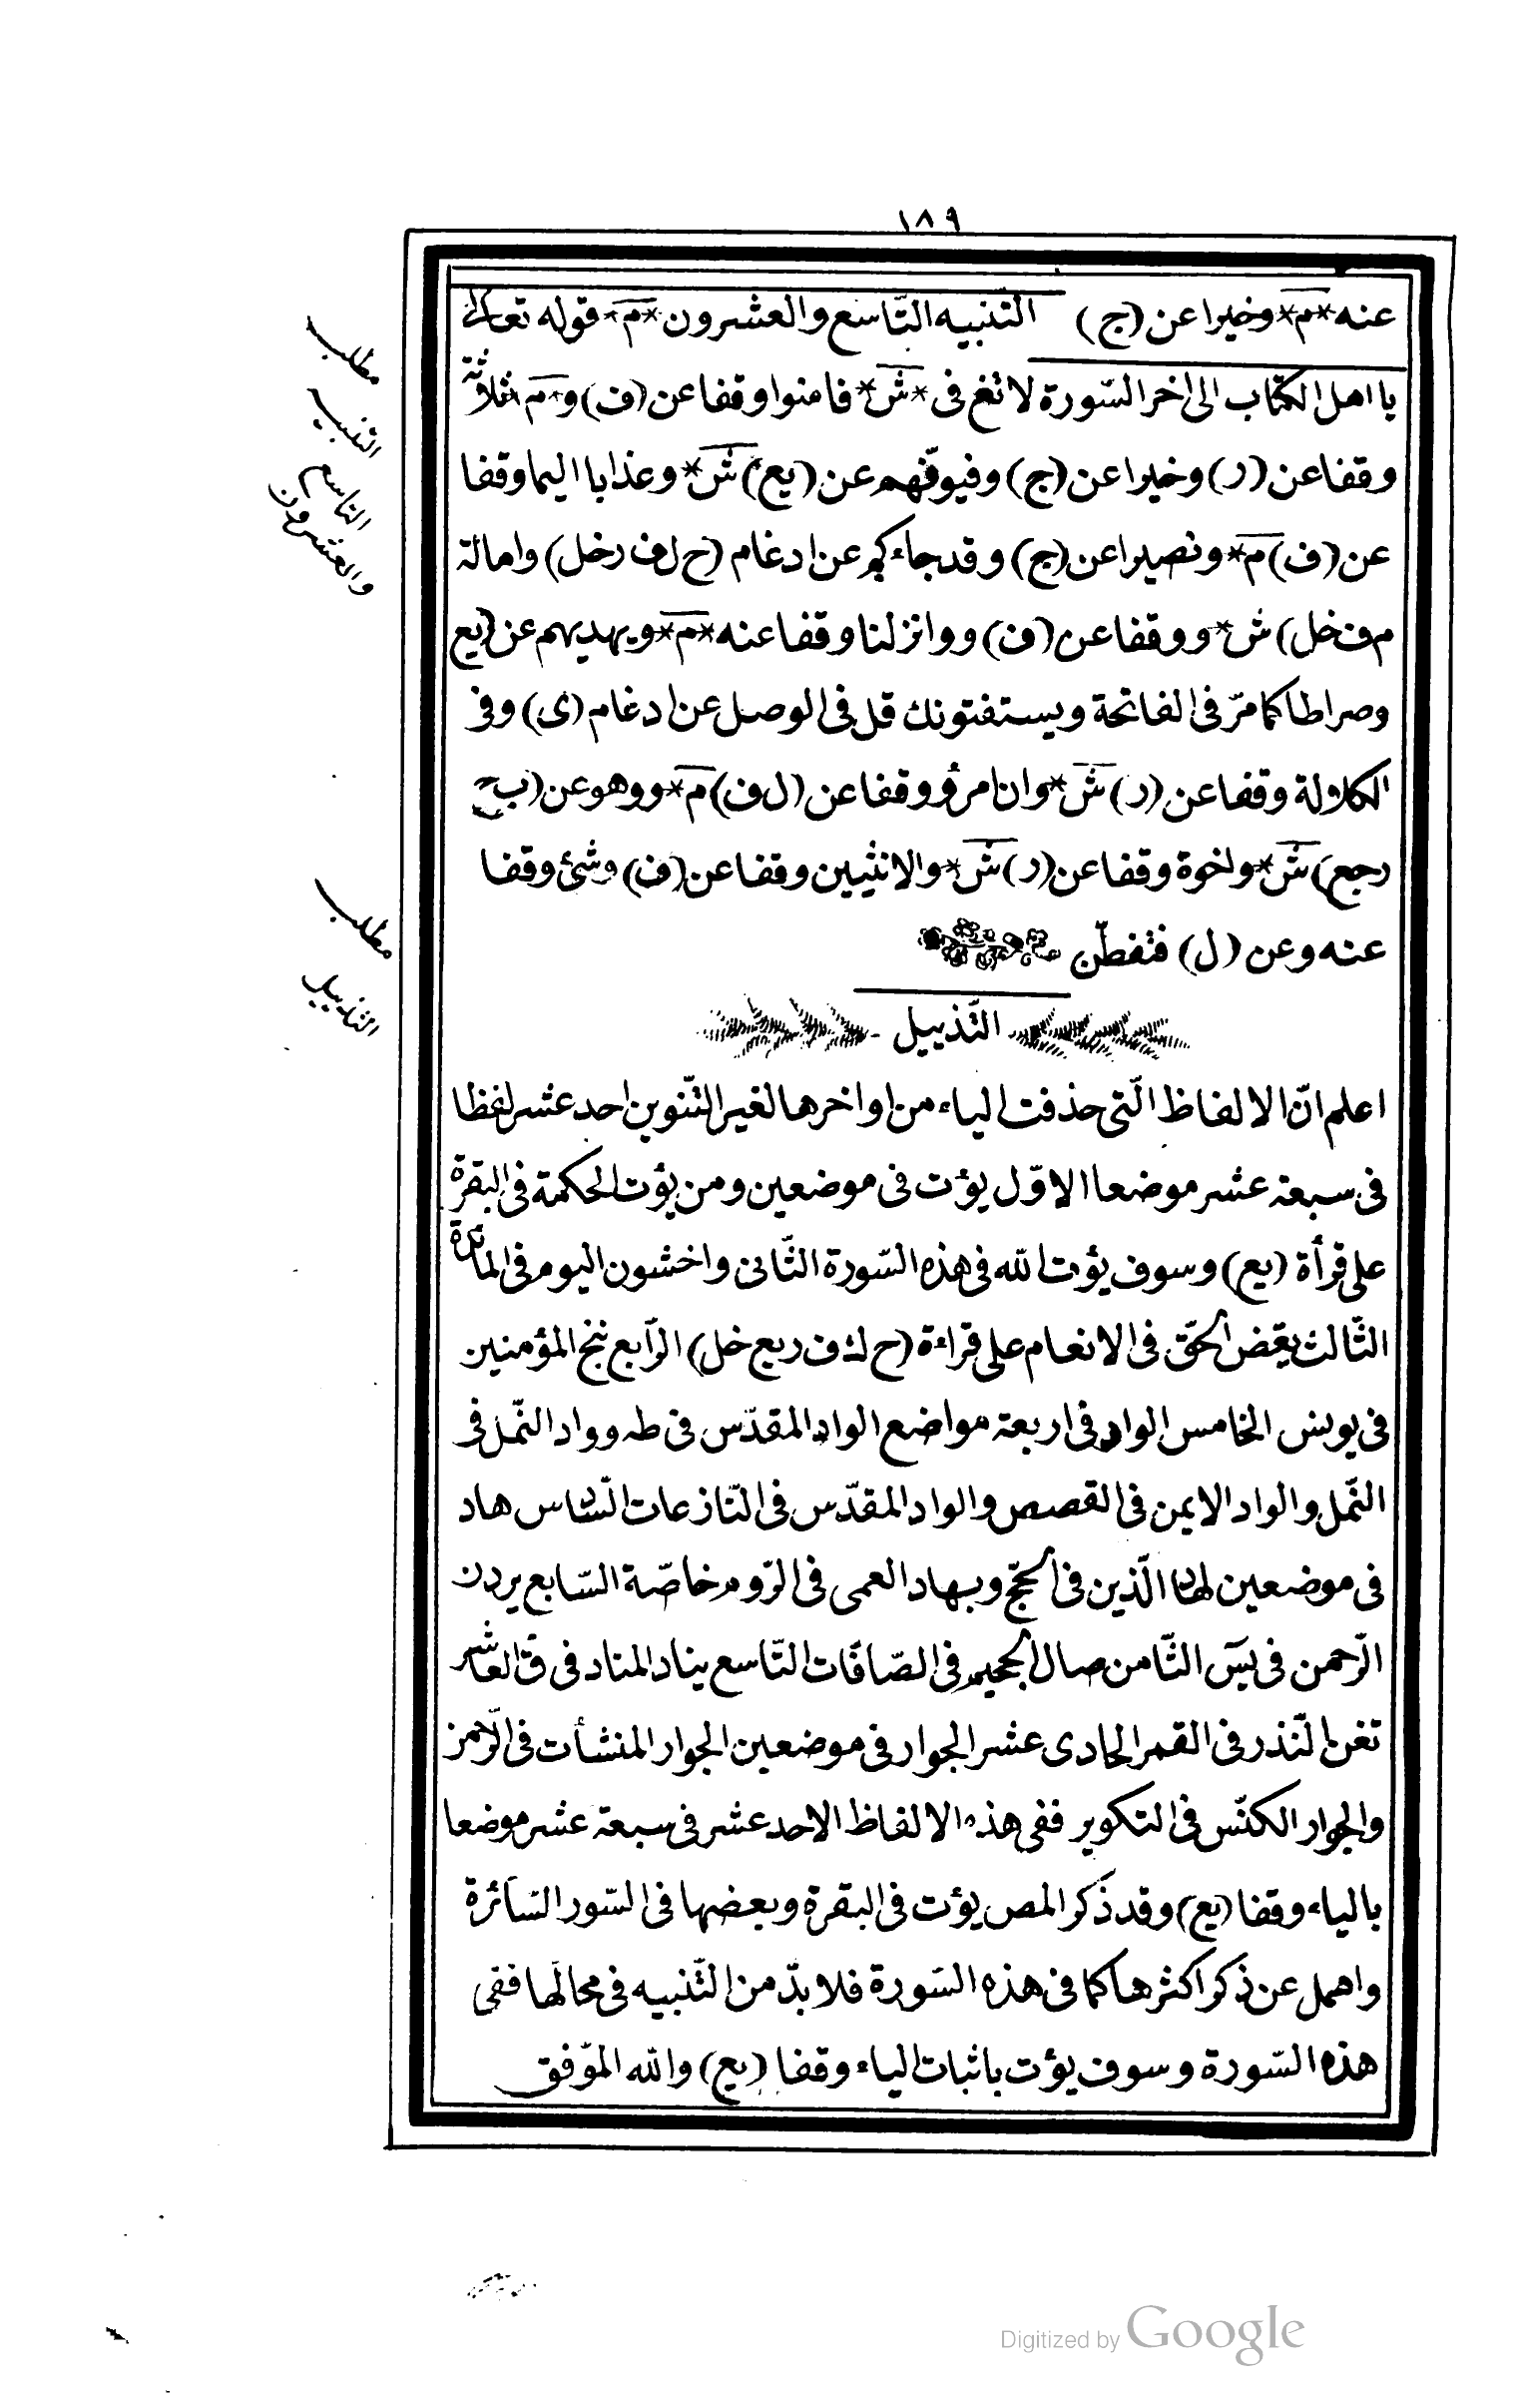 ١٨٩
عنه *م* وخيرا عن (ج) التّنبيه التّاسع والعشرون *م* قوله تعالى
يا اهل الكتاب الى اخر السّورة لا تغ فى *ش* فامنوا وقفا عن (ف) و*م ثلاثة
وقفا عن (ر) وخيرا عن (ج) وفيوفّهم عن (يع) ش* وعذابا اليما وقفا
عن (ف) م* ونصيرا عن (ج) وقد جاءكم عن ادغام (ح ل ف ر خل) وامالة
م ف خل) ش* ووقفا عن (ف) ووانزلنا وقفا عنه *م* ويهديهم عن (يع
وصراطا كما مرّ فى الفاتحة ويستفتونك قل فى الوصل عن ادغام (ى) وفى
الكلالة وقفا عن (ر) ش* وان امرؤ وقفا عن (ل ف) م* ووهو عن (ب ح
ر جع) ش* واخوة وقفا عن (ر) ش* والانثيين وقفا عن (ف) وشئ وقفا
عنه وعن (ل) فتفطّن
التّذييل
اعلم انّ الالفاظ الّتى حذفت الياء من اواخرها لغير التّنوين احد عشر لفظا
فى سبعة عشر موضعا الاوّل يؤت فى موضعين ومن يؤت الحكمة فى البقرة
على قرأة (يع) وسوف يؤت الله فى هذه السّورة الثّانى واخشون اليوم فى المائدة
الثّالث يقض الحقّ فى الانعام على قراءة (ح ك ف ر يع خل) الرّابع ننج المؤمنين
فى يونس الخامس الواد فى اربعة مواضع الواد المقدّس فى طه وواد النّمل فى
النّمل والواد الايمن فى القصص والواد المقدّس فى النّازعات السّادس هاد
فى موضعين لهاد الّذين فى الحجّ وبهاد العمى فى الرّوم خاصّة السّابع يردن
الرّحمن فى يسٓ الثّامن صال الجحيم فى الصّافّات التّاسع يناد المناد فى ق العاشر
تغن النّذر فى القمر الحادى عشر الجوار فى موضعين الجوار المنشأت فى الرّحمن
والجوار الكنّس فى التكوير ففى هذه الالفاظ الاحد عشر فى سبعة عشر موضعا
بالياء وقفا (يع) وقد ذكر المص يؤت فى البقرة وبعضها فى السّور السّائرة
واهمل عن ذكر اكثرها كما فى هذه السّورة فلا بدّ من التّنبيه فى محالّها ففى
هذه السّورة وسوف يؤت باثبات الياء وقفا (يع) والله الموّفق
مطلب
التنبيه
التاسع
والعشرون
مطلب
التذييل
Digitized by Google